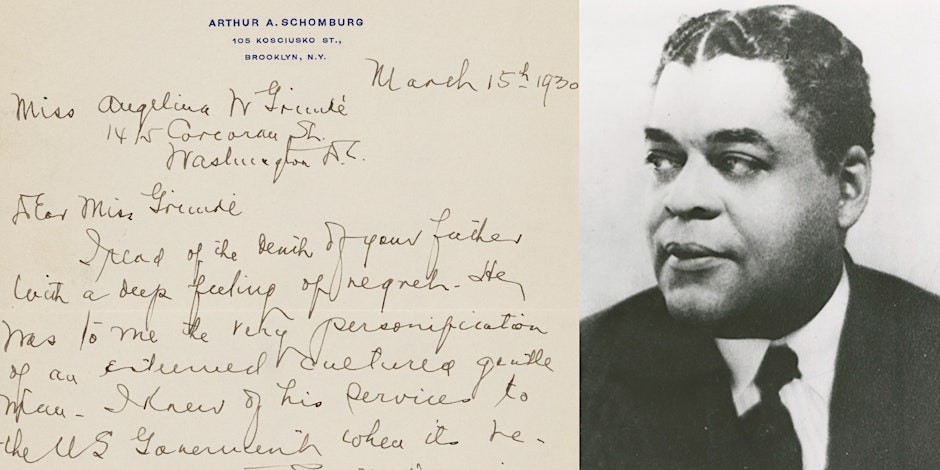 ARTHUR A. SCHOMBURG
105 KOSCIUSKO ST.,
BROOKLYN, N.Y.
March 15th 1930
Miss Angelina W Grimké
1415 Corcoran St.
Washington D.C.
Dear Miss Grimké
I read of the death of your father
with a deep feeling of regret - He
was to me the very personification
of an esteemed cultured gentle
man - I knew of his services to
the US Government when its re-